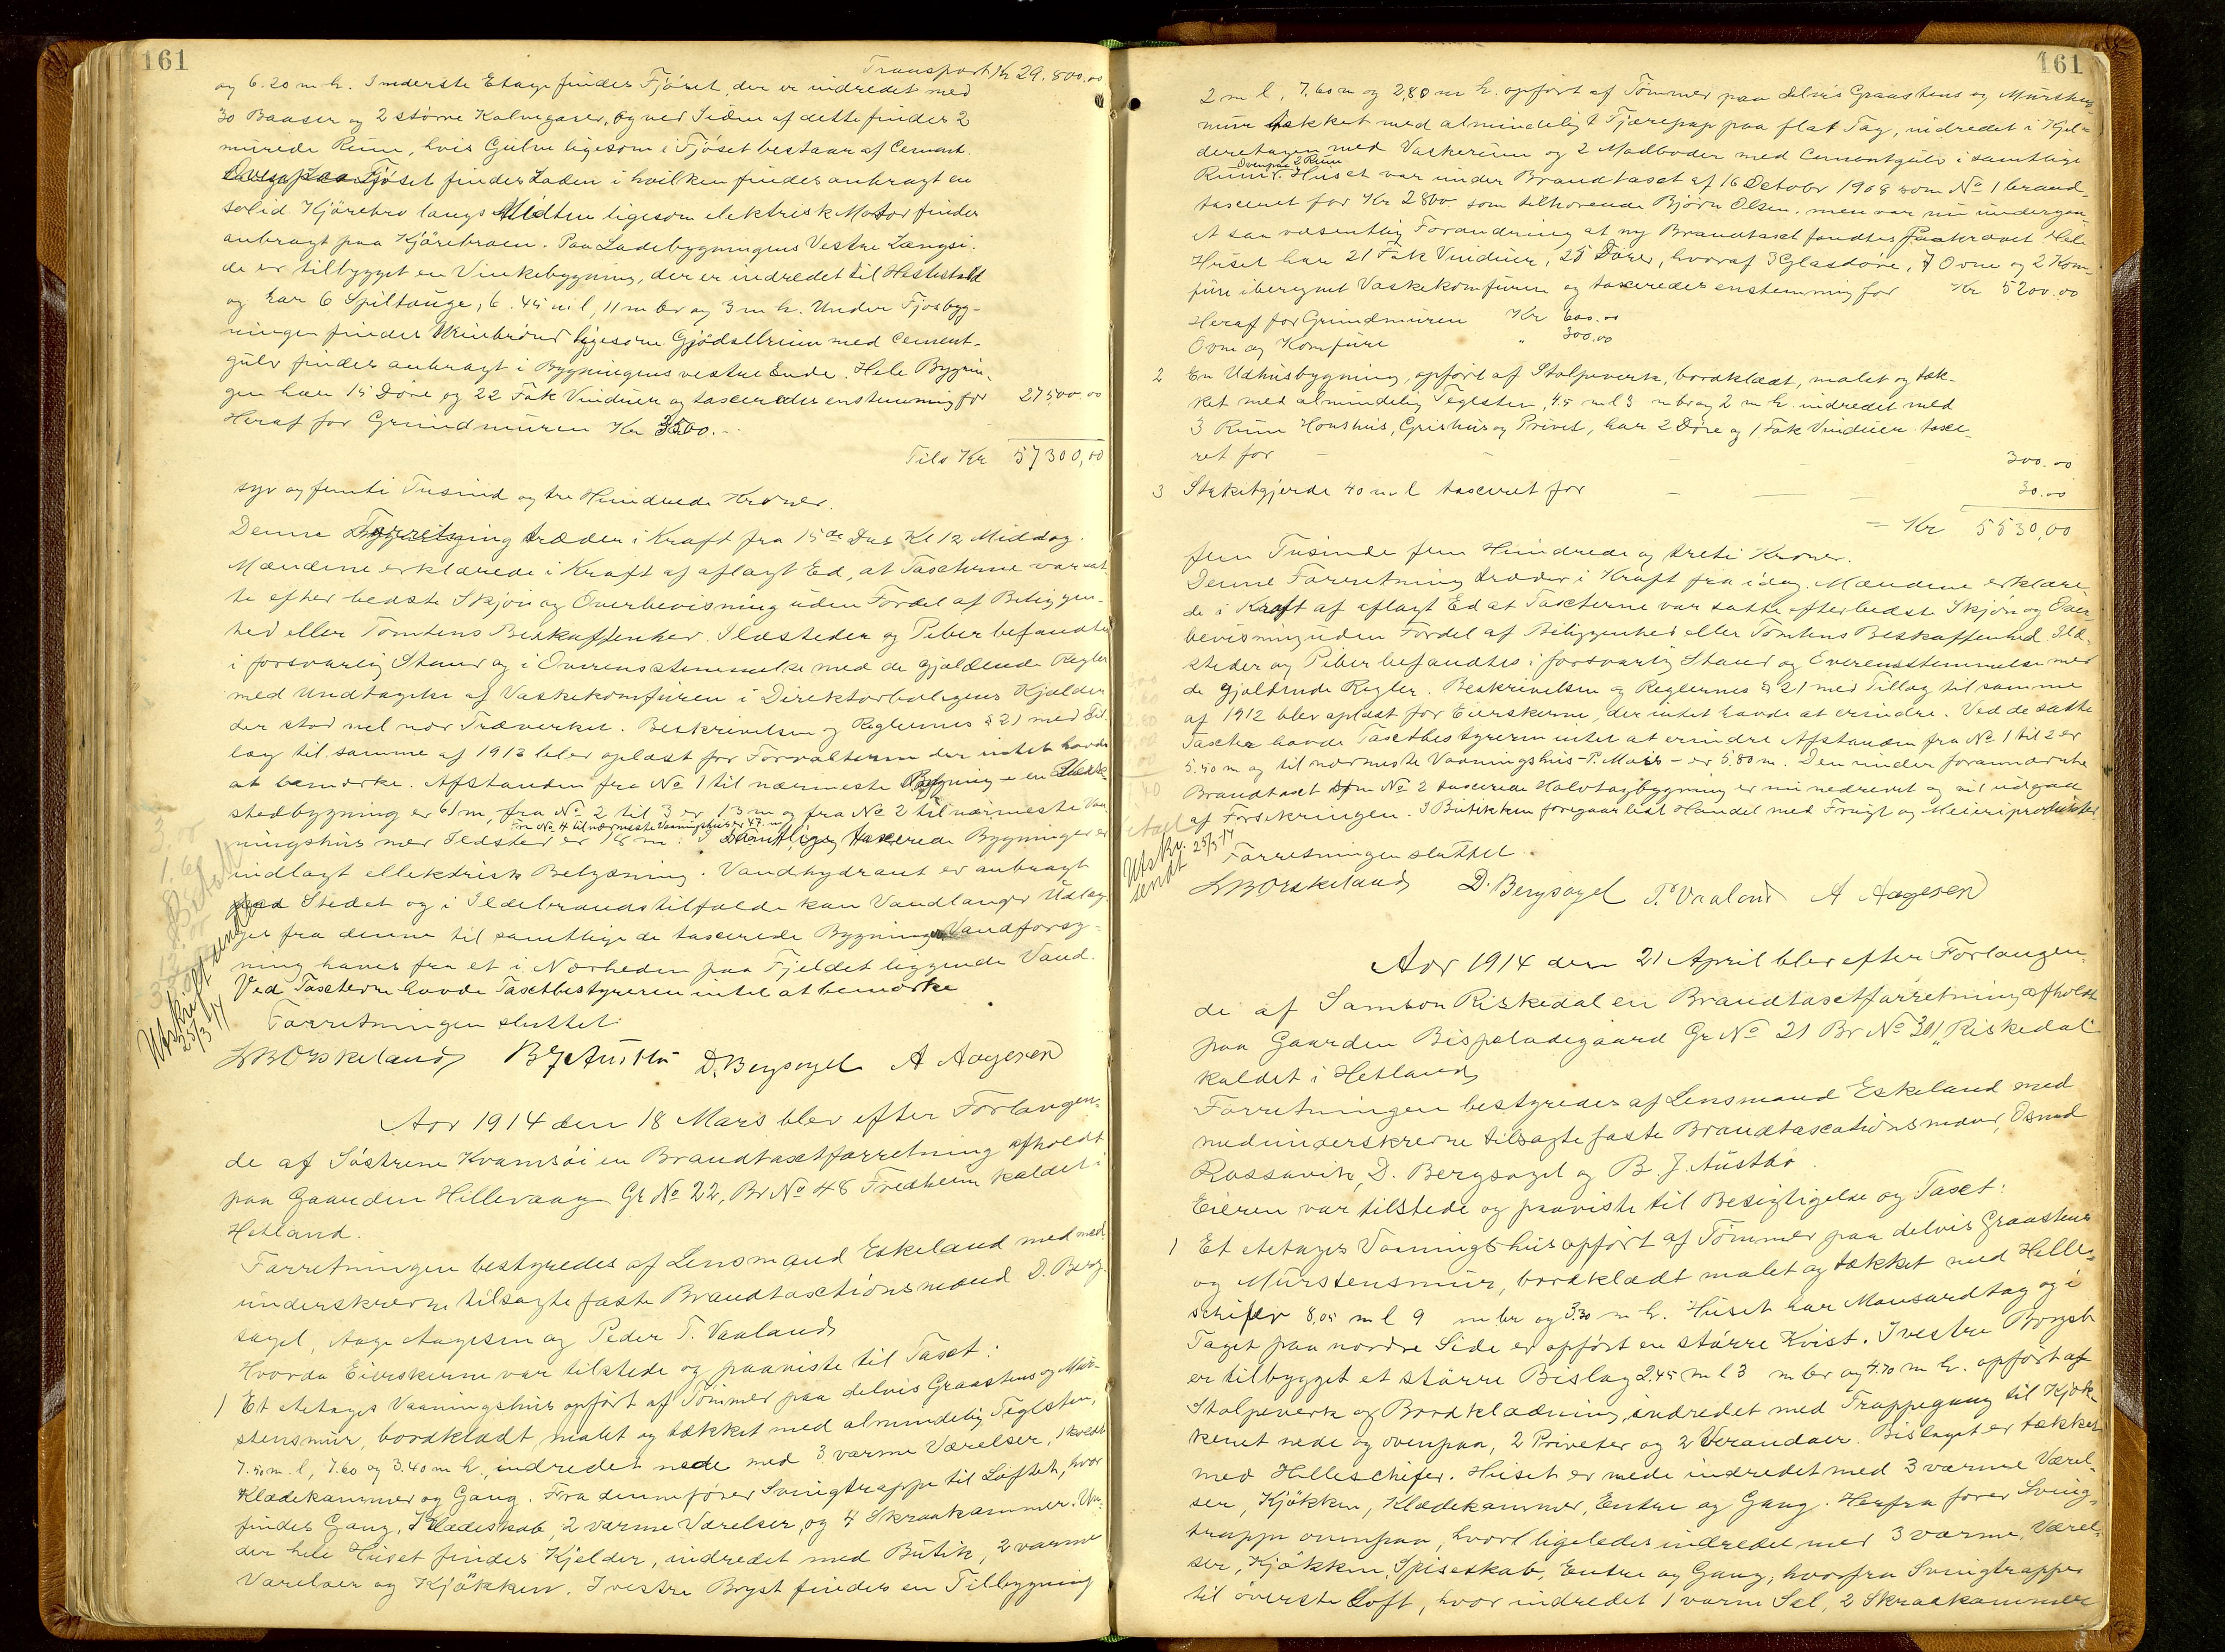 161
Transport Kr 29.800.00
og 6.20 m h. I nederste Etage findes Fjöset, der er indredet med
30 Baaser og 2 större Kalvegarer, og ved Siden af dette findes 2
murede Rum, hvis Gulve ligesom i Fjöset bestaar af Cement.
Ovenpaa Fjöset findes Laden i hvilken findes anbragt en
solid Kjörebro langs Midten ligesom elektrisk Motor findes
anbragt paa Kjörebroen. Paa Ladebygningens Vestre Langsi-
de er tilbygget en Vinkebygning, der er indredet til Hestestald
og har 6 Spiltauge, 6.45 m l, 11 m br og 3 m h. Under Fjosbyg-
ningen findes Urinbrönd ligesom Gjödselbrum med Cement-
gulv findes anbragt i Bygningens vestre Ende. Hele Bygnin-
gen har 15 Döre og 22 Fak Vinduer og taxeredes enstemmig for 27500.00
Heraf for Grundmuren Kr 3500.-
Tils Kr 57300,00
syv og femti Tusind og tre Hundrede Kroner.
Denne Forretning træder i Kraft fra 15de Ds Kl 12 Middag.
Mændene erklærede i Kraft af aflagt Ed, at Taxterne var sat-
te efter bedste Skjön og Overbevisning uden Fordel af Beliggen-
hed eller Tomtens Beskaffenhed. Ildsteder og Piber befandtes
i forsvarlig Stand og i Overensstemmelse med de gjældende Regler
med Undtagelse af Vaskekomfuren i Direktorboligens Kjælder
der stod vel nær Træverket. Beskrivelsen og Reglernes § 21 med Til-
læg til samme af 1912 blev oplæst for Forvalteren der intet havde
at bemærke. Afstanden fra No 1 til nærmeste Bygning - en
stedbygning er 61 m, fra No 2 til 3 er 13 m og fra No 2 til nærmeste Vaa-
Fra No 4 til nærmeste Vaaningshus er 47 m
ningshus med Ildsted er 18 m. I samtlige taxerede Bygninger er
indlagt ellektrisk Belysning. Vandhydrant er anbragt
ved Stedet og i Ildebrandstilfælde kan Vandlanger Udlæg-
ges fra denne til samtlige de taxerede Bygninger Vandforsy-
ning haves fra et i Nærheden paa Fjeldet liggende Vand.
Ved Taxterne havde Taxtbestyreren intet at bemærke
Forretningen sluttet.
Utskrift sendt
25/3 14
L B Orskeland B J Austbö D. Bergsagel A Aagesen
Aar 1914 den 18 Mars blev efter Forlangen-
de af Söstrene Kvamsöi en Brandtaxtforretning afholdt
paa Gaarden Hillevaag Gr No 22, Br No 48 Fredheim kaldet i
Hetland.
Forretningen bestyredes af Lensmand Eskeland med ned-
underskrevne tilsagte faste Brandtaxtionsmænd D. Berg-
sagel, Aage Aagesen og Peder T. Vaaland
Hvorda Eierskerne var tilstede og paaviste til Taxt:
1 Et Etages Vaaningshus opfört af Tömmer paa delvis Graastens og Mur-
stensmur, bordklædt, malet og tækket med almindelig Teglsten,
7.50 m. l, 7.60 og 3.40 m h, indredet nede med 3 varme Værelser, 1 koldt
Klædekammer og Gang. Fra denne förer Svingtrappe til Loftet, hvor
findes Gang, 1 Klædeskab, 2 varme Værelser, og 4 Skraakammer. Un-
der hele Huset findes Kjelder, indredet med Butik, 2 varme
Værelser og Kjökken. I vestre Bryst findes en Tilbygning
161
2 m l, 7.60 m og 2,80 m h. opfört af Tömmer paa delvis Graastens og Murstens
mur tækket med almindeligt Tjærepap paa flat Tag, indredet i Kjel-
deretagen med Vaskerum og 2 Madboder med Cementgulv i samtlige
Ovenpaa 2 Rum
Rum. Huset var under Brandtaxt af 16 October 1908 som No 1 brand-
taxeret for Kr 2800 som tilhörende Björn Olsen. men var nu undergaa-
et saa væsentlig Forandring at ny Brandtaxt fandtes paakrævet. Hele
Huset har 21 Fak Vinduer, 25 Dörer, hvoraf 3 Glasdöre, 7 Ovne og 2 Kom-
fure iberegnet Vaskekomfuren og taxeredes enstemmig for Kr 5200.00
Heraf for Grundmuren Kr 600.00
Ovne og Komfure " 300.00
2 En Udhusbygning, opfört af Stolpeverk, bordklædt, malet og tæk-
ket med almindelig Teglsten, 4.5 m l 3 m br og 2 m h. indredet med
3 Rum Hønshus, Grishus og Privet, har 2 Döre og 1 Fak Vinduer taxe-
ret for 300.00
3 Stakitgjerde 40 m l taxeret for 30.00
Kr 5530,00
fem Tusinde fem Hundrede og treti Kroner.
Denne Forretning træder i Kraft fra idag. Mændene erklære-
de i Kraft af aflagt Ed at Taxterne var satte efter bedste Skjön og Over-
bevisning uden Fordel af Beliggenhed eller Tomtens Beskaffenhed. Ild-
steder og Piber befandtes i forsvarlig Stand og Overensstemmelse med
de gjældende Regler. Beskrivelsen og Reglernes § 21 med Tillæg til samme
af 1912 blev oplæst for Eierskerne, der intet havde at erindre. Ved de satte
Taxter havde Taxtbestyreren intet at erindre Afstanden fra No 1 til 2 er
5.50 m og til nærmeste Vaaningshus - P. Mass - er 5.80 m. Den under forannævnte
Brandtaxt som No 2 taxerede Halvtagbygning er nu nedrevet og vil udgaa
af Forsikringen. I Butikken foregaar lidt Handel med Frugt og Meieriprodukter.
Forretningen sluttet.
Utskr. 25/3 14
sendt
L B Orskeland D. Bergsagel P. Vaaland A Aagesen
Aar 1914 den 21 April blev efter Forlangen-
de af Samson Riskedal en Brandtaxtforretning afholdt
paa Gaarden Bispeladegaard Gr No 21 Br No 301 "Riskedal"
kaldet i Hetland
Forretningen bestyredes af Lensmand Eskeland med
nedunderskrevne tilsagte faste Brandtaxationsmænd, Osmod
Rossavik, D. Bergsagel og B. J. Austbö.
Eieren var tilstede og paaviste til Besigtigelse og Taxt:
1 Et Etages Vaaningshus opfört af Tömmer paa delvis Graastens
og Murstensmur, bordklædt malet og tækket med Helle-
schifer 8,05 m l 9 m br og 3.30 m h. Huset har Mansardtag og i
Taget paa nordre Side er opfört en större Kvist. I vestre Bryst
er tilbygget et större Bislag 2.45 m l 3 m br og 4.70 m h. opfört af
Stolpeverk og Bordklædning, indredet med Trappegang til Kjök-
kenet nede og ovenpaa, 2 Priveter og 2 Verandaer. Bislaget er tækket
med Helleschifer. Huset er nede indredet med 3 varme Værel-
ser, Kjökken, Klædekammer, Entre og Gang. Herfra förer Sving-
trappe ovenpaa, hvor ligeledes indredet med 3 varme Værel-
ser, Kjökken, Spiseskab, Entre og Gang, hvorfra Svingtrappe
til överste Loft, hvor indredet 1 varm Sal, 2 Skraakammer